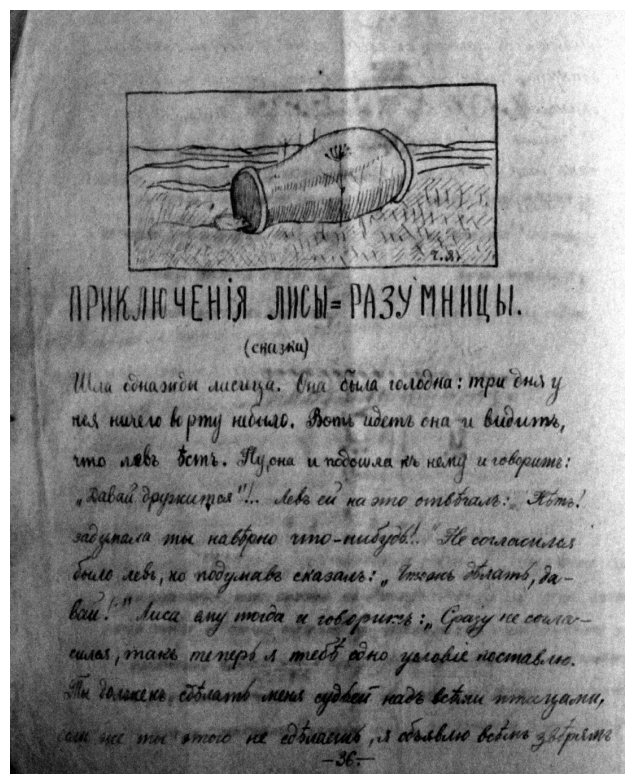 Г.Я.
ПРИКЛЮЧЕНІЯ ЛИСЫ=РАЗУМНИЦЫ.
(сказка)
Шла однажды лисица. Она была голодна: три дня у
нея ничего во рту небыло. Вотъ идетъ она и видитъ,
что левъ ѣстъ. Ну, она и подошла къ нему и говоритъ:
„Давай дружится"!.. Левъ ей на это отвѣчалъ: „Нѣтъ!
задумала ты навѣрно что-нибудь!.." Не согласился
было левъ, но подумавъ сказалъ: „Чтожъ дѣлать, да-
вай!" Лиса ему тогда и говоритъ: „Сразу не согла-
сился, такъ теперь я тебѣ одно условіе поставлю.
Ты долженъ сдѣлать меня судьей надъ всѣми птицами,
если же ты этого не сдѣлаешь, я объявлю всѣмъ звѣрямъ
—36.—